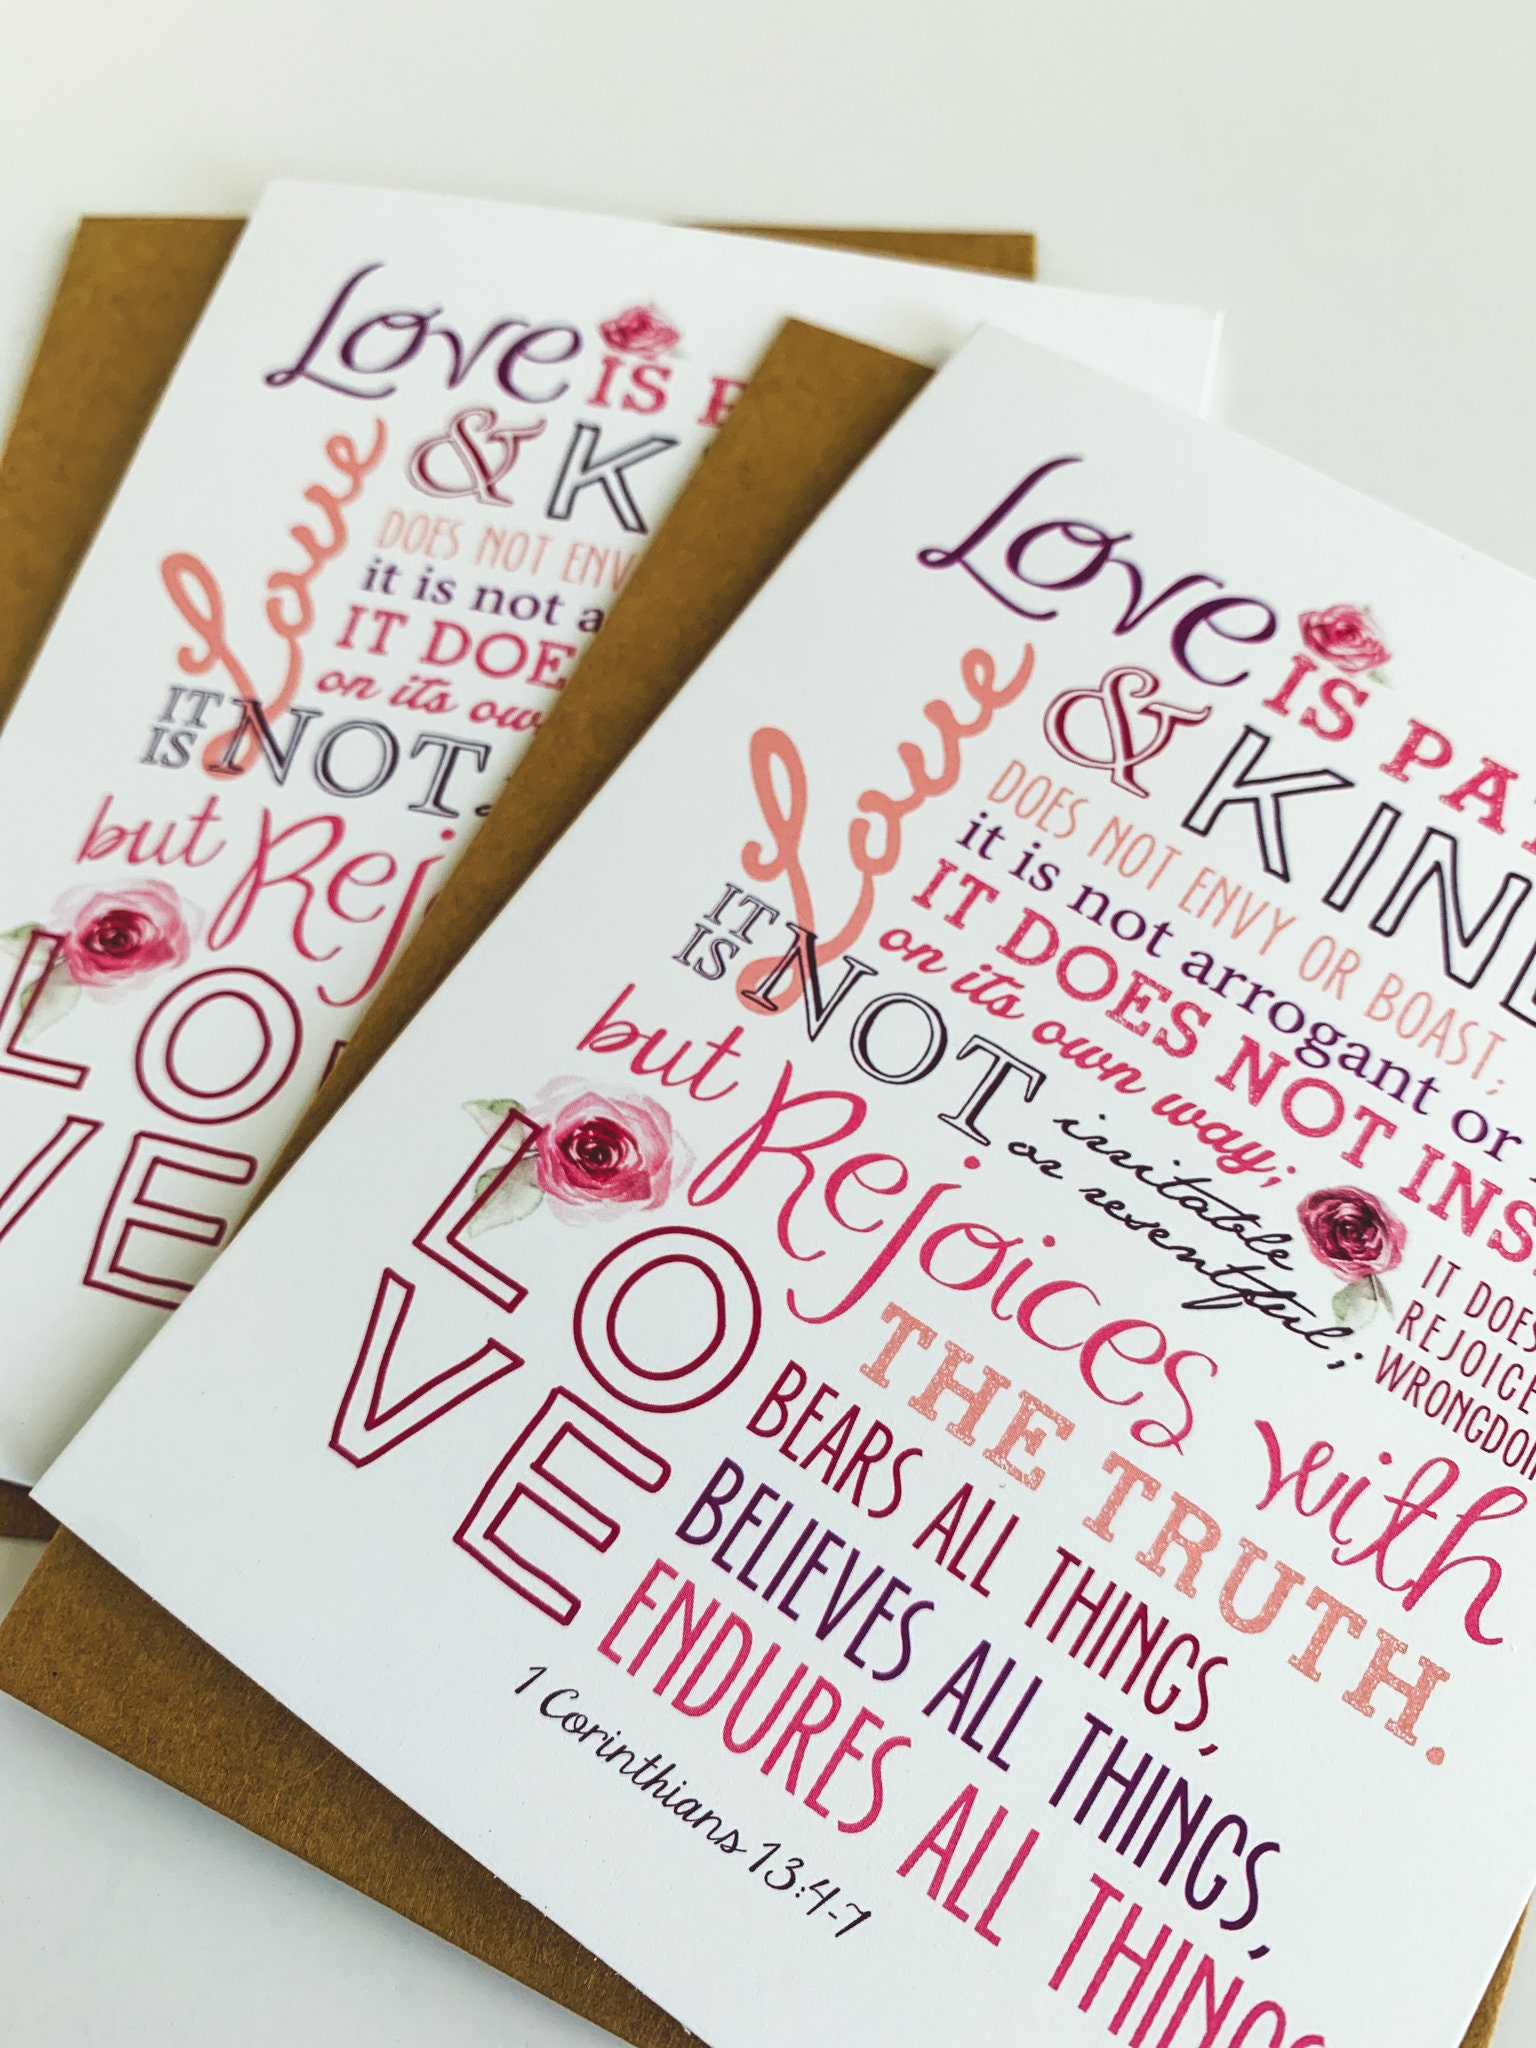 Love IS P
& K
Love DOES NOT ENV
it is not a
IT DOE
on its ow
IT IS NOT
but Rej
LO
VE
Love IS PA
& KIN
Love DOES NOT ENVY OR BOAST;
it is not arrogant or
IT DOES NOT INS
on its own way;
IT IS NOT irritable
or resentful;
IT DOES
REJOICE
WRONGDOI
but Rejoices with
THE TRUTH.
LO
VE
BEARS ALL THINGS,
BELIEVES ALL THINGS,
ENDURES ALL THING
1 Corinthians 13:4-7